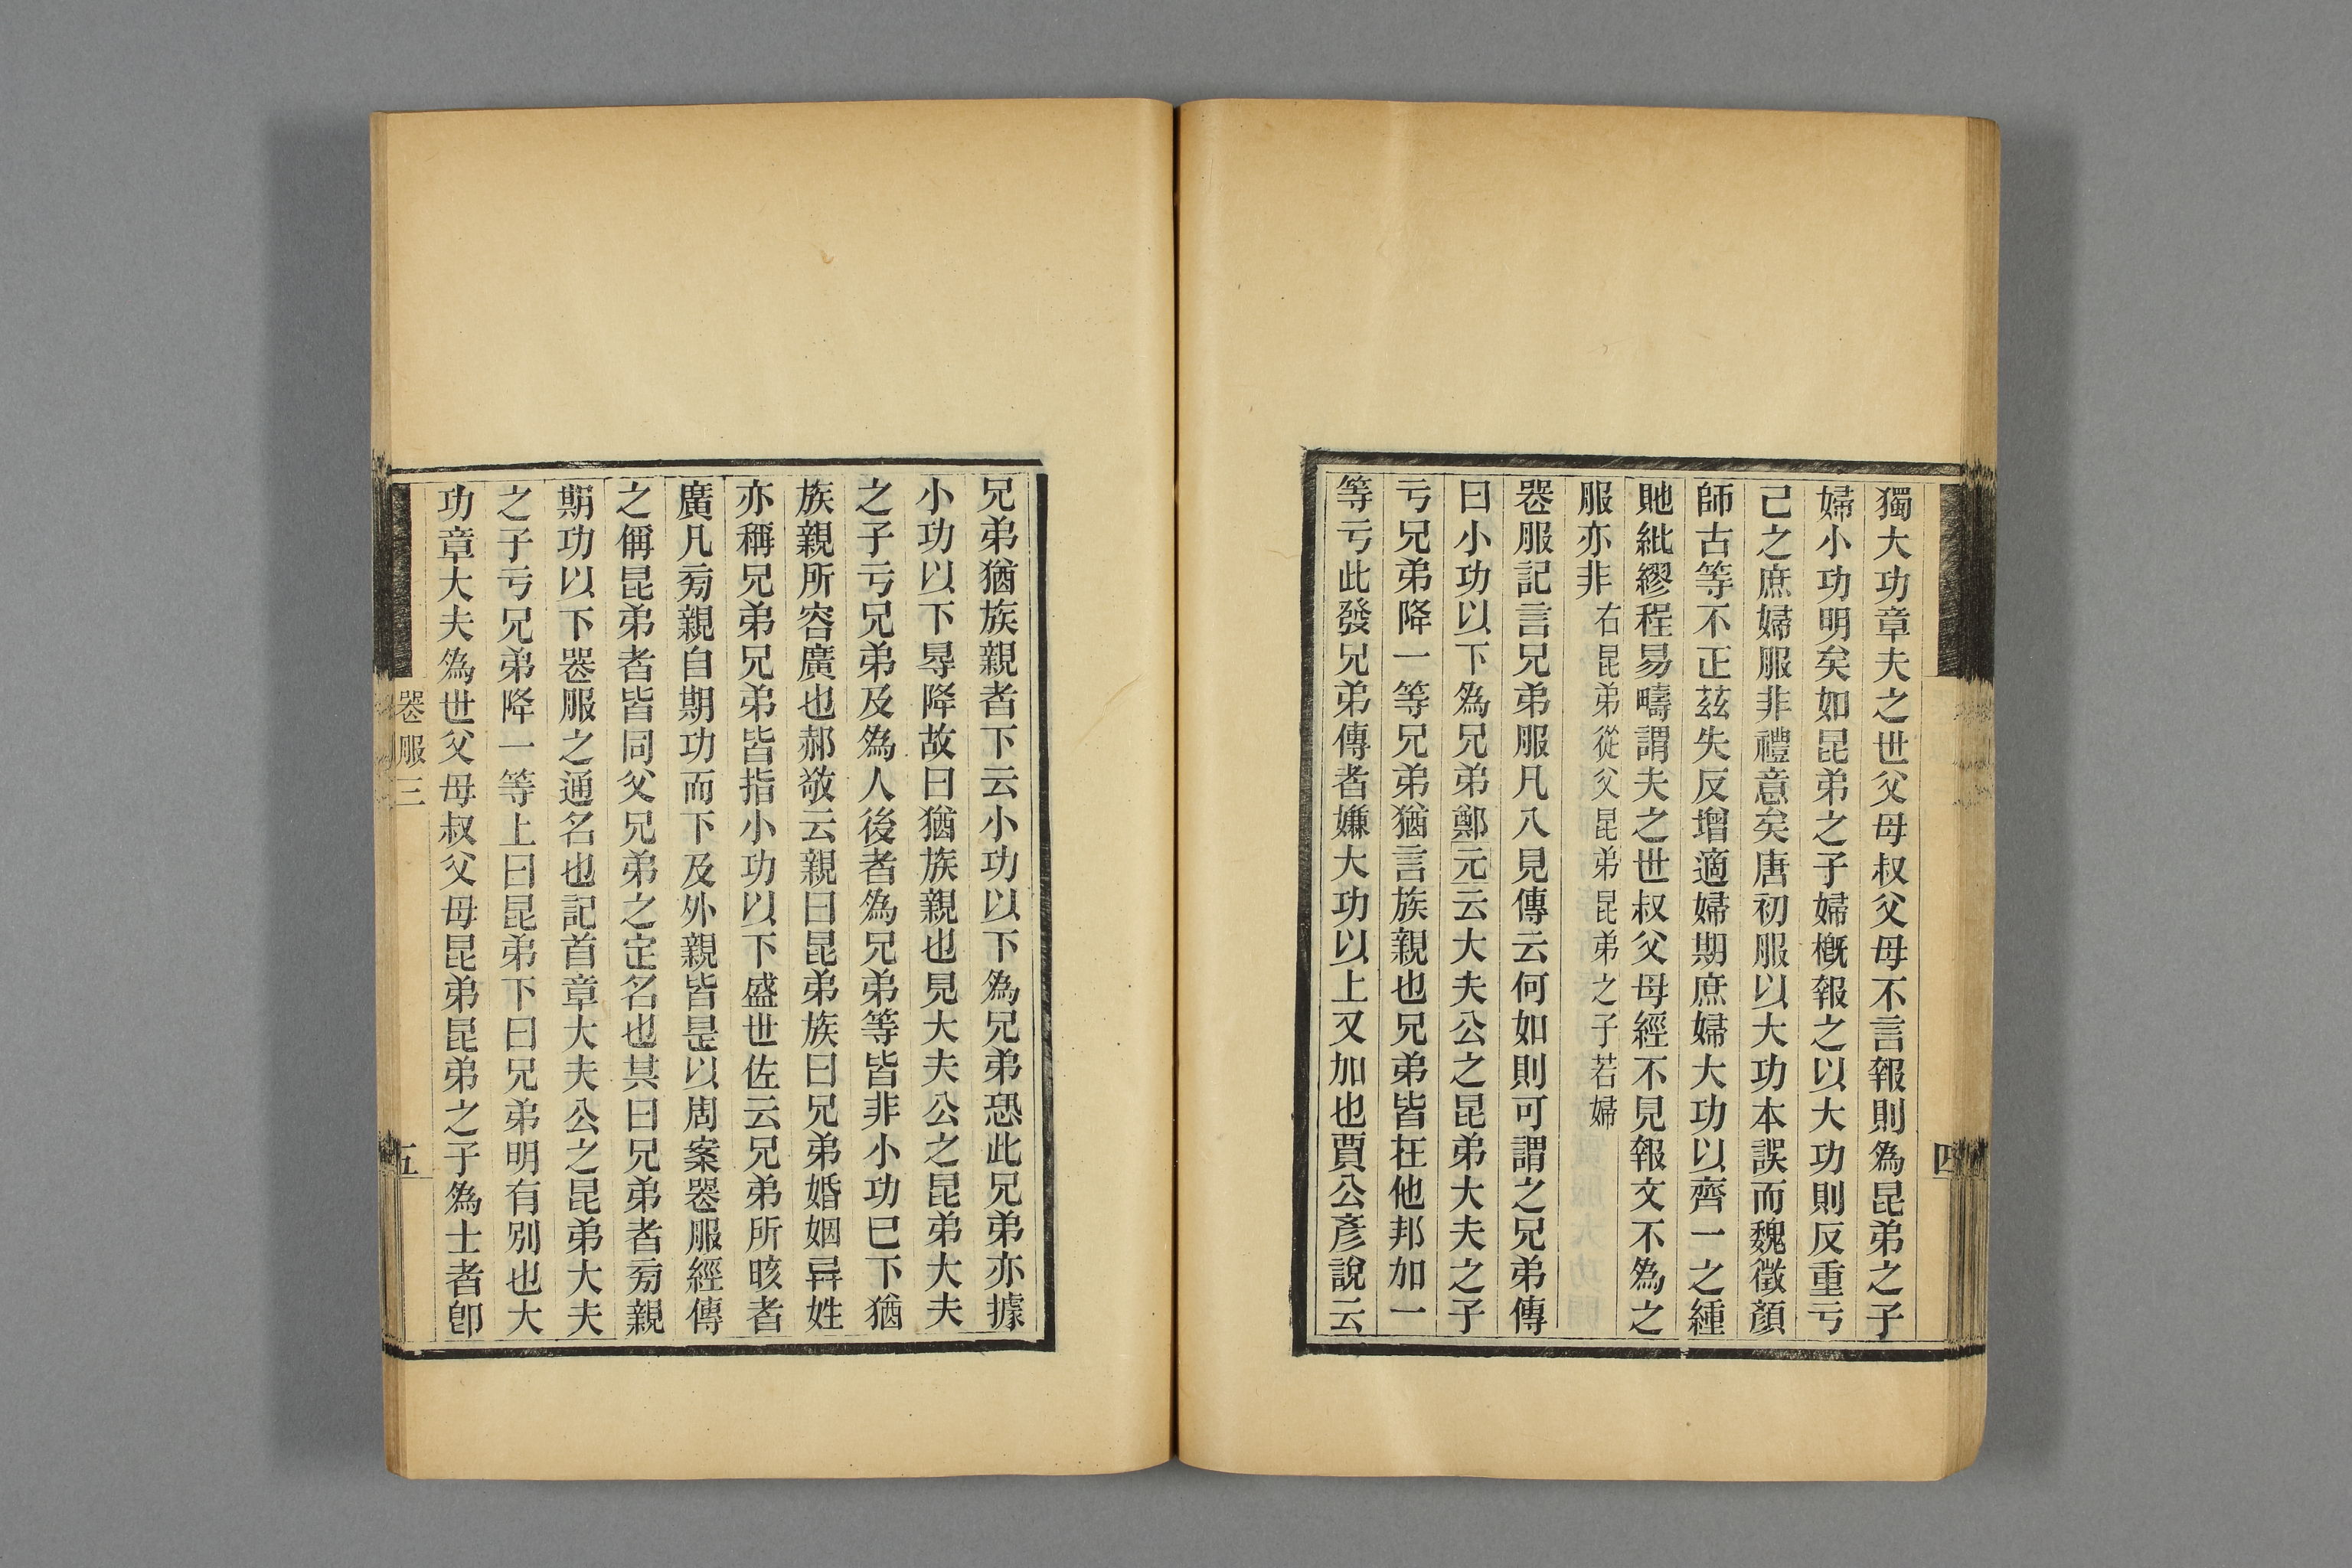 獨大功章夫之世父母叔父母不言報則為昆弟之子
婦小功明矣如昆弟之子婦槪報之以大功則反重亏
己之庶婦服非禮意矣唐初服以大功本誤而魏徵顏
師古等不正茲失反增適婦期庶婦大功以齊一之緟
貤紕繆程易疇謂夫之世叔父母經不見報文不為之
服亦非 右昆弟從父昆弟昆弟之子若婦
喪服記言兄弟服凡八見傳云何如則可謂之兄弟傳
曰小功以下為兄弟鄭元云大夫公之昆弟大夫之子
亏兄弟降一等兄弟猶言族親也兄弟皆在他邦加一
等亏此發兄弟傳者嫌大功以上又加也賈公彥說云
四
兄弟猶族親者下云小功以下為兄弟恐此兄弟亦據
小功以下得降故曰猶族親也見大夫公之昆弟大夫
之子亏兄弟及為人後者為兄弟等皆非小功已下猶
族親所容廣也郝敬云親曰昆弟族曰兄弟婚姻異姓
亦稱兄弟兄弟皆指小功以下盛世佐云兄弟所晐者
廣凡旁親自期功而下及外親皆是以周案喪服經傳
之偁昆弟者皆同父兄弟之定名也其曰兄弟者旁親
期功以下喪服之通名也記首章大夫公之昆弟大夫
之子亏兄弟降一等上曰昆弟下曰兄弟明有別也大
功章大夫為世父母叔父母昆弟昆弟之子為士者卽
喪服三
五